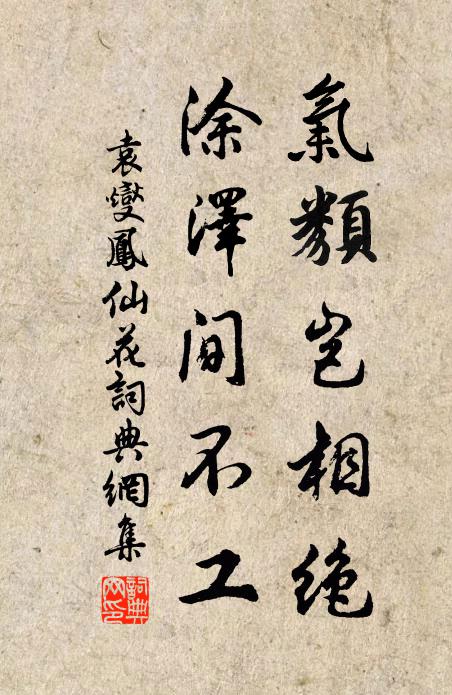 氣類豈相絶
涂澤間不工
袁燮鳳仙花詞典網集
詞典網印